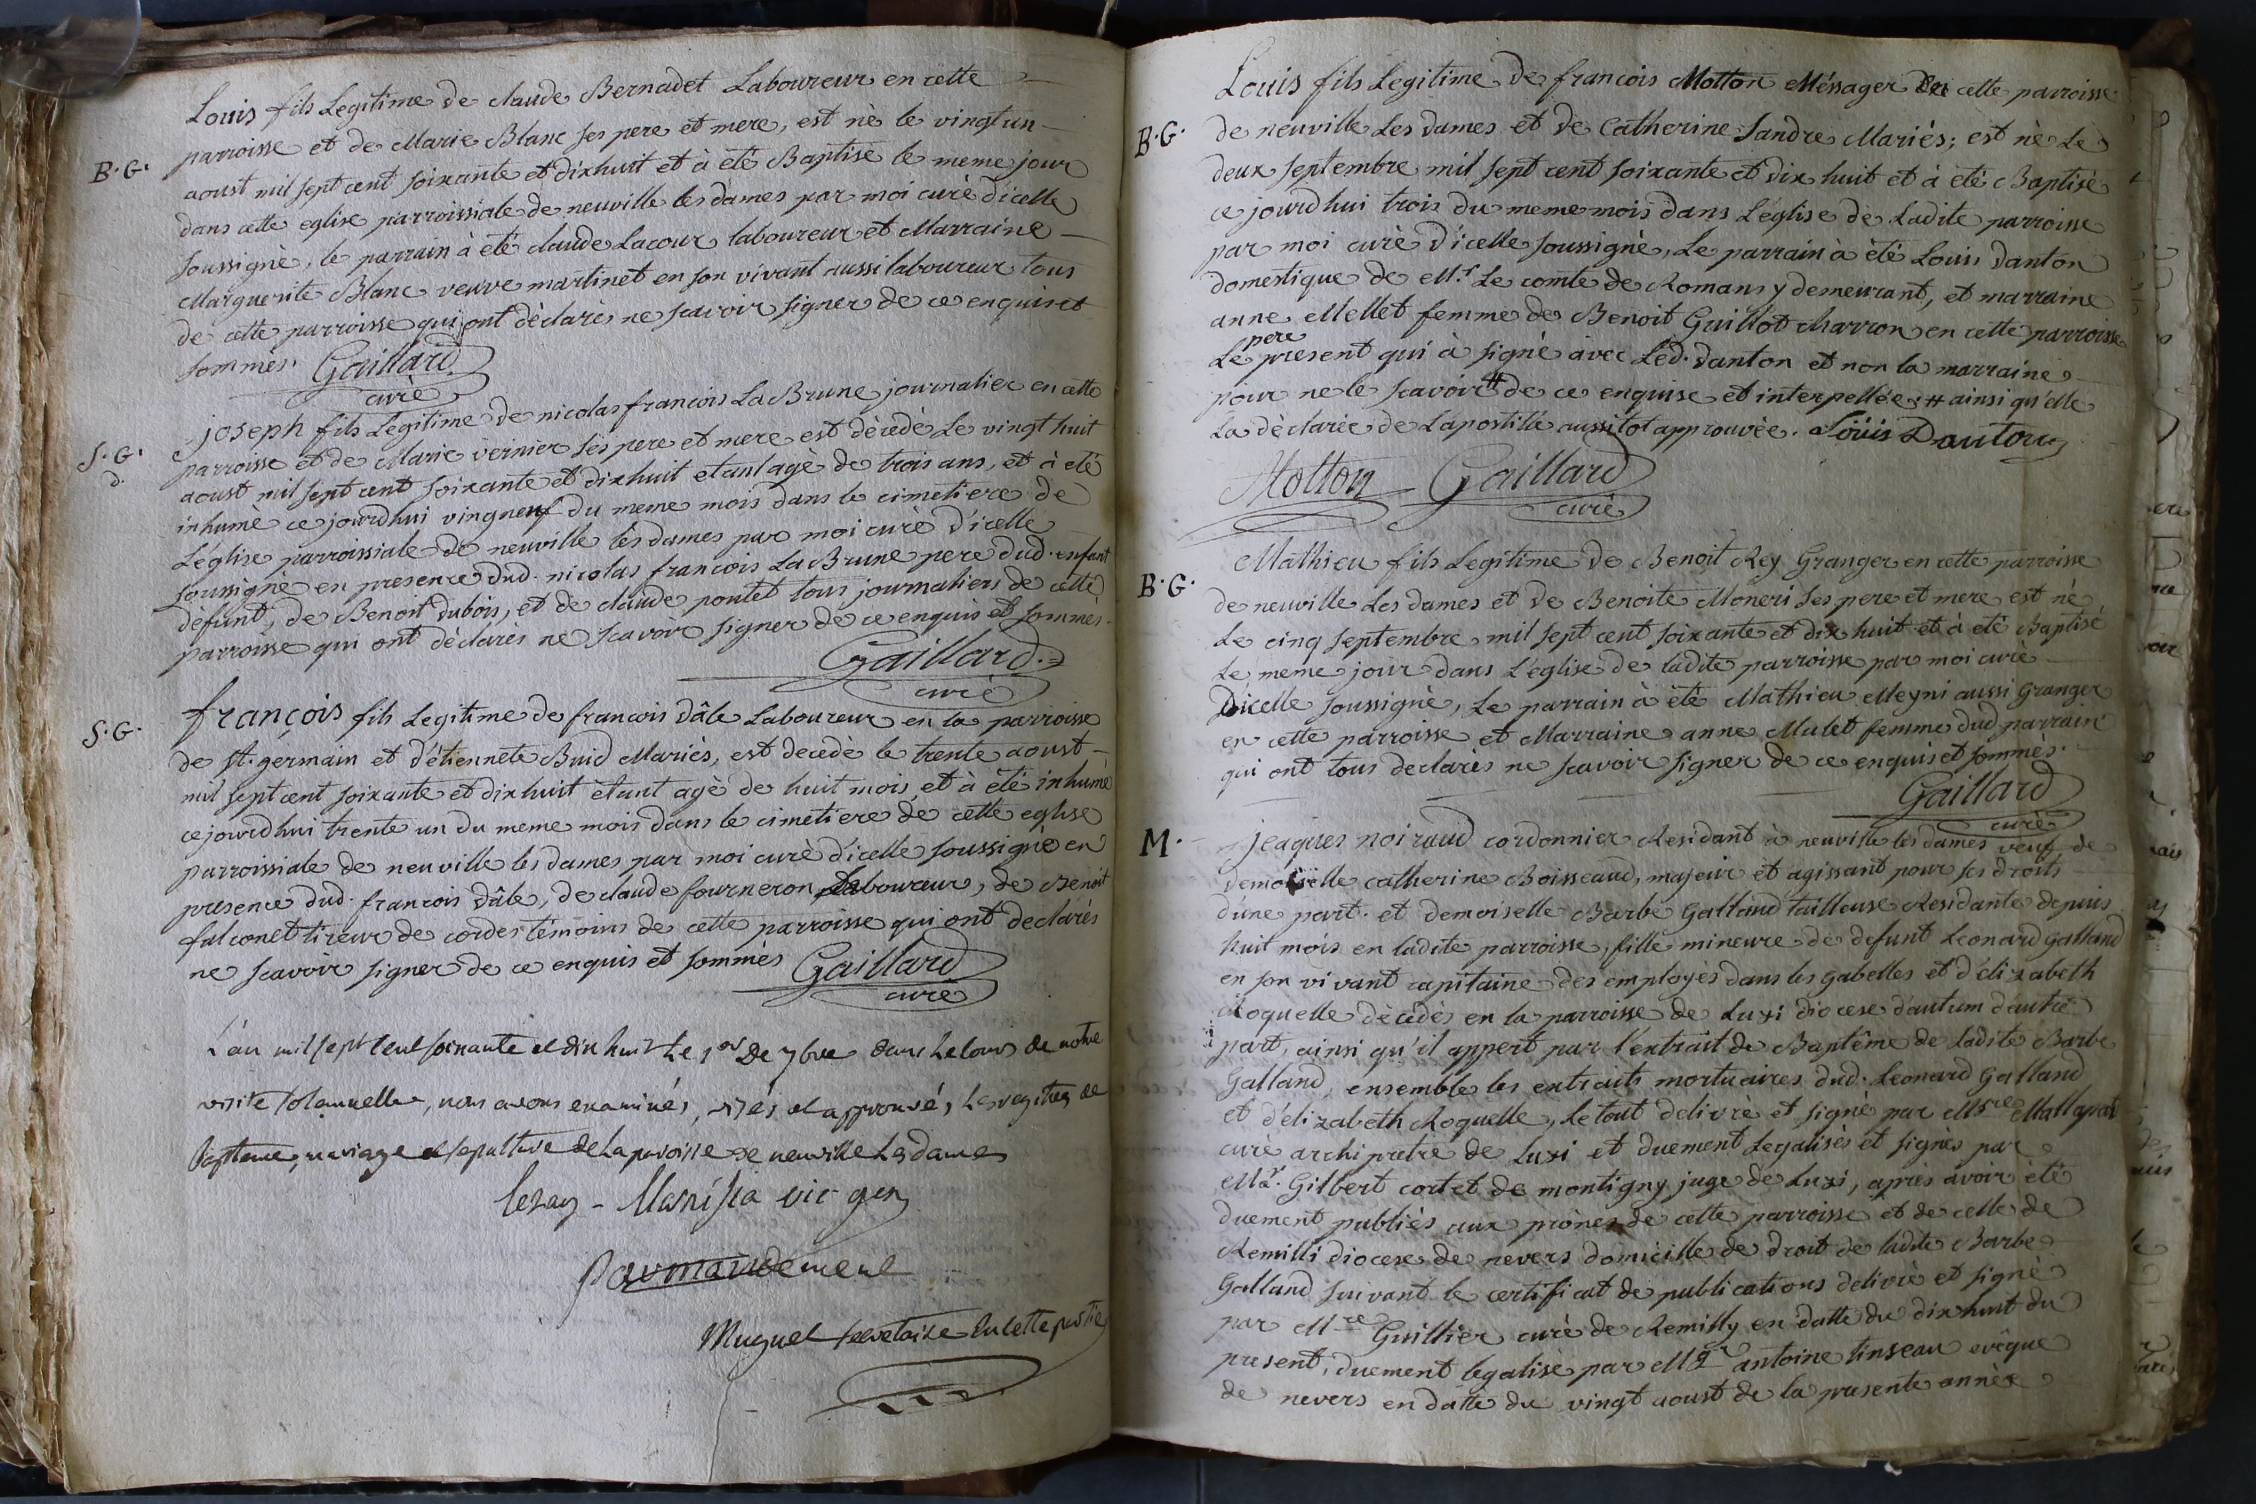 Louis fils Legitime de claude Bernadet Laboureur en cette
B.G. parroisse et de Marie Blanc ses pere et mere, est nè le vingt un
aoust mil sept cent soixante et dixhuit et à été Baptisè le meme jour
dans cette eglise parroissiale de neuville les dames par moi curè d'icelle
soussignè, le parrain à étè claude Lacour laboureur et Marraine
Marguerite Blanc veuve martinet en son vivant aussi laboureur tous
de cette parroisse qui ont dèclarès ne scavoir signer de ce enquis et
sommès. Gaillard
curè
joseph fils Legitime de nicolas francois La Brune journalier en cette
S.G. parroisse et de Marie vernier ses pere et mere est dècedè Le vingt huit
d. aoust mil sept cent soixante et dixhuit etant agè de trois ans, et à etè
inhumè ce jourdhui vingneuf du meme mois dans le cimetiere de
L'eglise parroissiale de neuville les dames par moi curè d'icelle
soussignè en presence dud. nicolas francois La Brune pere dud. enfant
dèfunt, de Benoit Dubois, et de claude pontet tous journaliers de cette
parroisse qui ont dèclarès ne scavoir signer de ce enquis et sommès.
Gaillard.
curè
S.G. françois fils Legitime de francois dâle Laboureur en la parroisse
de st. germain et d'étiennete Buid Mariès, est decedè le trente aoust
mil sept cent soixante et dixhuit ètant agè de huit mois et à étè inhumè
cejourdhui trente un du meme mois dans le cimetiere de cette eglise
parroissiale de neuville les dames par moi curè d'icelle soussignè en
presence dud. francois dâle, de claude fourneron Laboureur, de Benoit
falconet tireur de cordes tèmoins de cette parroisse qui ont declarès
ne scavoir signer de ce enquis et sommès Gaillard
curè
L'an mil sept cent soixante et dix huit Le 1er De 7bre dans Le cours de notre
visite, nous avons examinés, visés et approuvés Les registres de
Bapteme, mariage et sepulture de La paroisse de neuville Les dames
vic gen
Par mandement
Muguet secretaire En cette partie
Louis fils Legitime de francois Motton Mèssager de cette parroisse
B.G. de neuville Les dames et de Catherine Sandre Mariès; est nè Le
deux septembre mil sept cent soixante et dix huit et à étè Baptisè
ce jourdhui trois du meme mois dans L'èglise de Ladite parroisse
par moi curè d'icelle soussignè, Le parrain à étè Louis Danton
domestique de Mr. Le comte de Romans y demeurant, et marraine
anne Mellet femme de Benoit Guillot charron en cette parroisse
pere
Le present qui à signè avec Led. danton et non la marraine
pour ne le scavoir # de ce enquise et interpellèe; # ainsi qu'elle
La dèclarèe de Lapostille aussitot approuvèe. Loüis Danton
Motton Gaillard
curè
Mathieu fils Legitime de Benoit Rey Granger en cette parroisse
B.G. de neuville Les dames et de Benoite Moneri ses pere et mere est nè
Le cinq septembre mil sept cent soixante et dix huit et à étè Baptisè
Le meme jour dans L'èglise de ladite parroisse par moi curè
Dicelle soussignè, Le parrain à étè Mathieu Meyni aussi Granger
en cette parroisse et Marraine anne Mulet femme dud. parrain
qui ont tous declarès ne scavoir signer de ce enquis et sommès.
Gaillard
curè
M. jeaques noiraud cordonnier Residant à neuville les dames veuf de
demoiselle catherine Boisseaud, majeur et agissant pour ses droits
d'une part. et demoiselle Barbe Galland tailleuse Residante depuis
huit mois en ladite parroisse, fille mineure de defunt Leonard Galland
en son vivant capitaine des employès dans les Gabelles et d'èlizabeth
Roquelle dècèdès en la parroisse de Luzi diocese d'autum d'autre
part, ainsi qu'il appert par l'extrait de Baptême de ladite Barbe
Galland, ensemble les extraits mortuaires dud. Leonard Galland
et d'èlizabeth Roquelle, Le tout delivrè et signè par Msre
curè archipretre de Luzi et duement Legalisès et signès par
Mr. Gilbert cortet de montigny juge de Luzi, après avoir étè
duement publiès aux prònes de cette parroisse et de celle de
Remilli diocese de nevers domicille de droit de ladite Barbe
Galland suivant le certificat de publications delivrè et signè
par Mre Guillier curè de Remilly en datte du dixhuit du
present, duement legalisè par Mgr antoine tinseau evêque
de nevers en datte du vingt aoust de la presente annèe